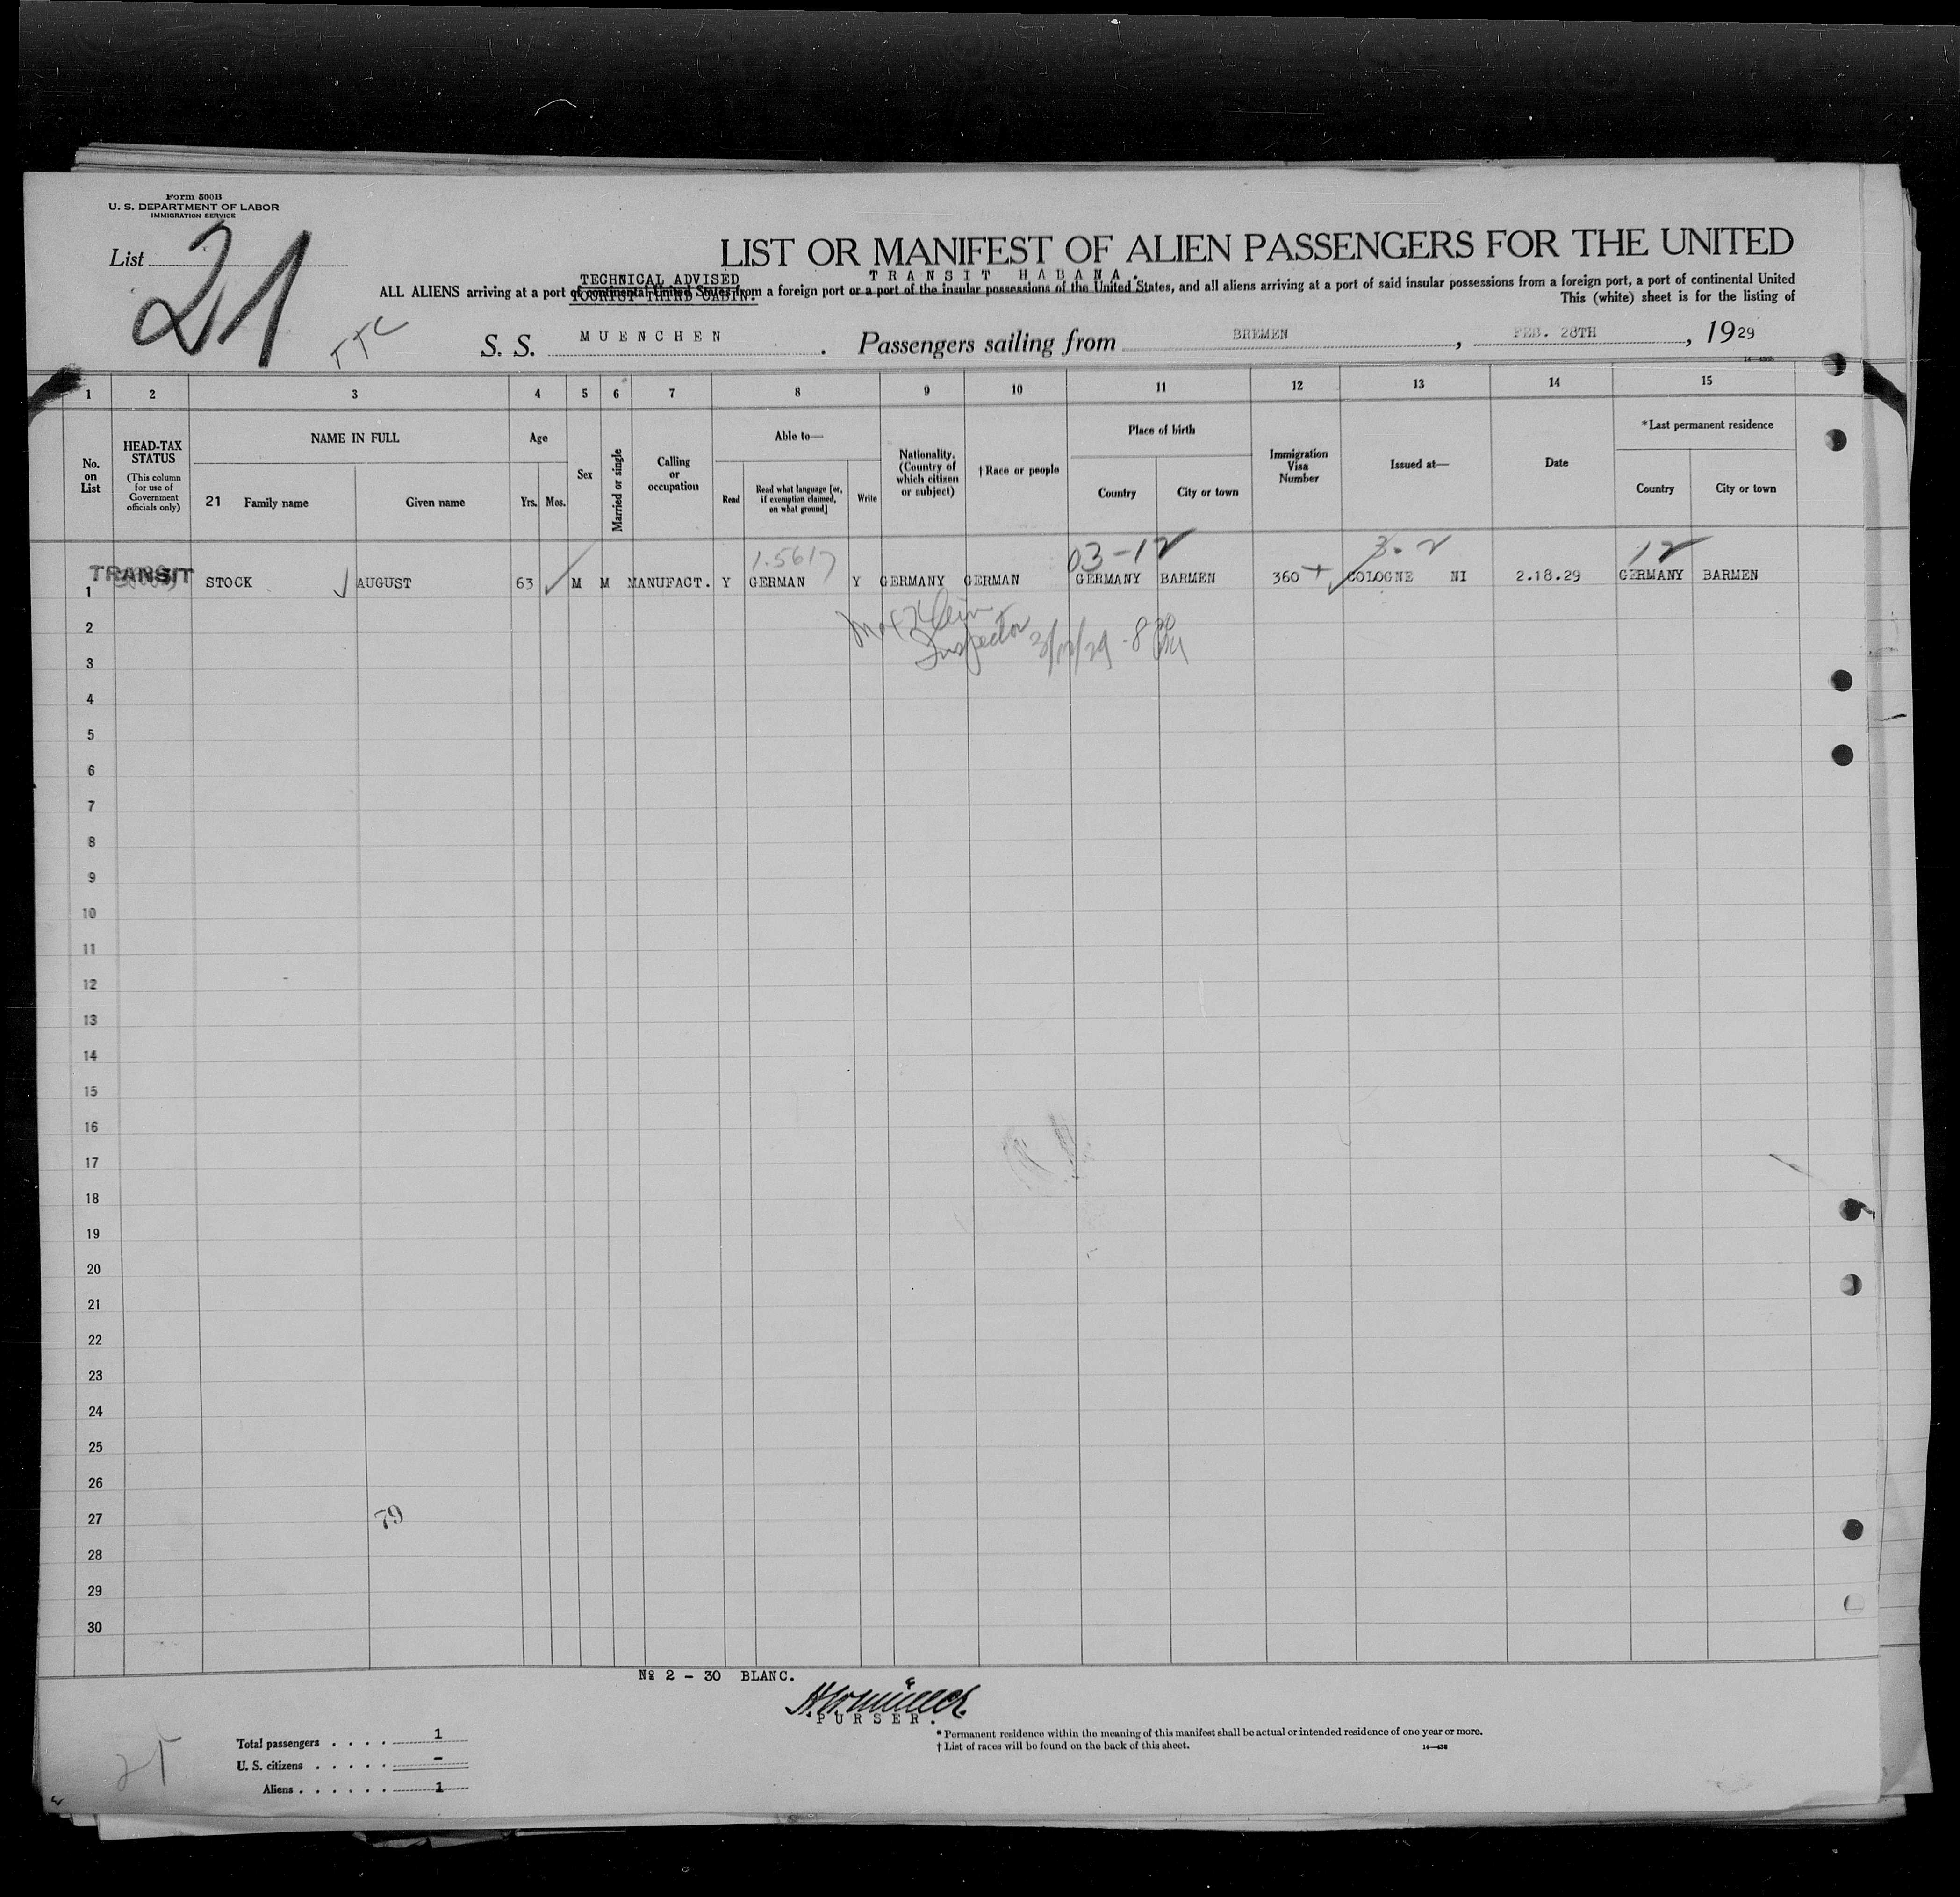 Form 500B
U. S. DEPARTMENT OF LABOR
IMMIGRATION SERVICE
List 21
TTC
LIST OR MANIFEST OF ALIEN PASSENGERS FOR THE UNITED
TECHNICAL ADVISED
TRANSIT HABANA.
ALL ALIENS arriving at a port of continental United States from a foreign port or a part of the insular possessions of the United States, and all aliens arriving at a port of said insular possessions from a foreign port, a part of continental United
TOURIST THIRD CABIN.
This (white) sheet is for the listing of
S. S. MUENCHEN. Passengers sailing from BREMEN, FEB. 28TH, 1929
1 2 3 4 5 6 7 8 9 10 11 12 13 14 15
No. on List
HEAD-TAX STATUS (This column for use of Government officials only)
NAME IN FULL
21 Family name
Given name
Age
Yrs. Mos.
Sex
Married or single
Calling or occupation
Able to—
Read
Read what language [or, if exemption claimed, on what ground]
Write
Nationality. (Country of which citizen or subject)
† Race or people
Place of birth
Country
City or town
Immigration Visa Number
Issued at—
Date
*Last permanent residence
Country
City or town
1.5617 03-12 3-2 12
TRANSIT
1 STOCK AUGUST 63 M M MANUFACT. Y GERMAN Y GERMANY GERMAN GERMANY BARMEN 360 COLOGNE NI 2.18.29 GERMANY BARMEN
Max Klein
Inspector 3/12/29 - 8 30 PM
2
3
4
5
6
7
8
9
10
11
12
13
14
15
16
17
18
19
20
21
22
23
24
25
26
27
79
28
29
30
№ 2 - 30 BLANC.
PURSER.
* Permanent residence within the meaning of this manifest shall be actual or intended residence of one year or more.
† List of races will be found on the back of this sheet.
Total passengers . . . . 1
U. S. citizens . . . . . -
Aliens . . . . . . 1